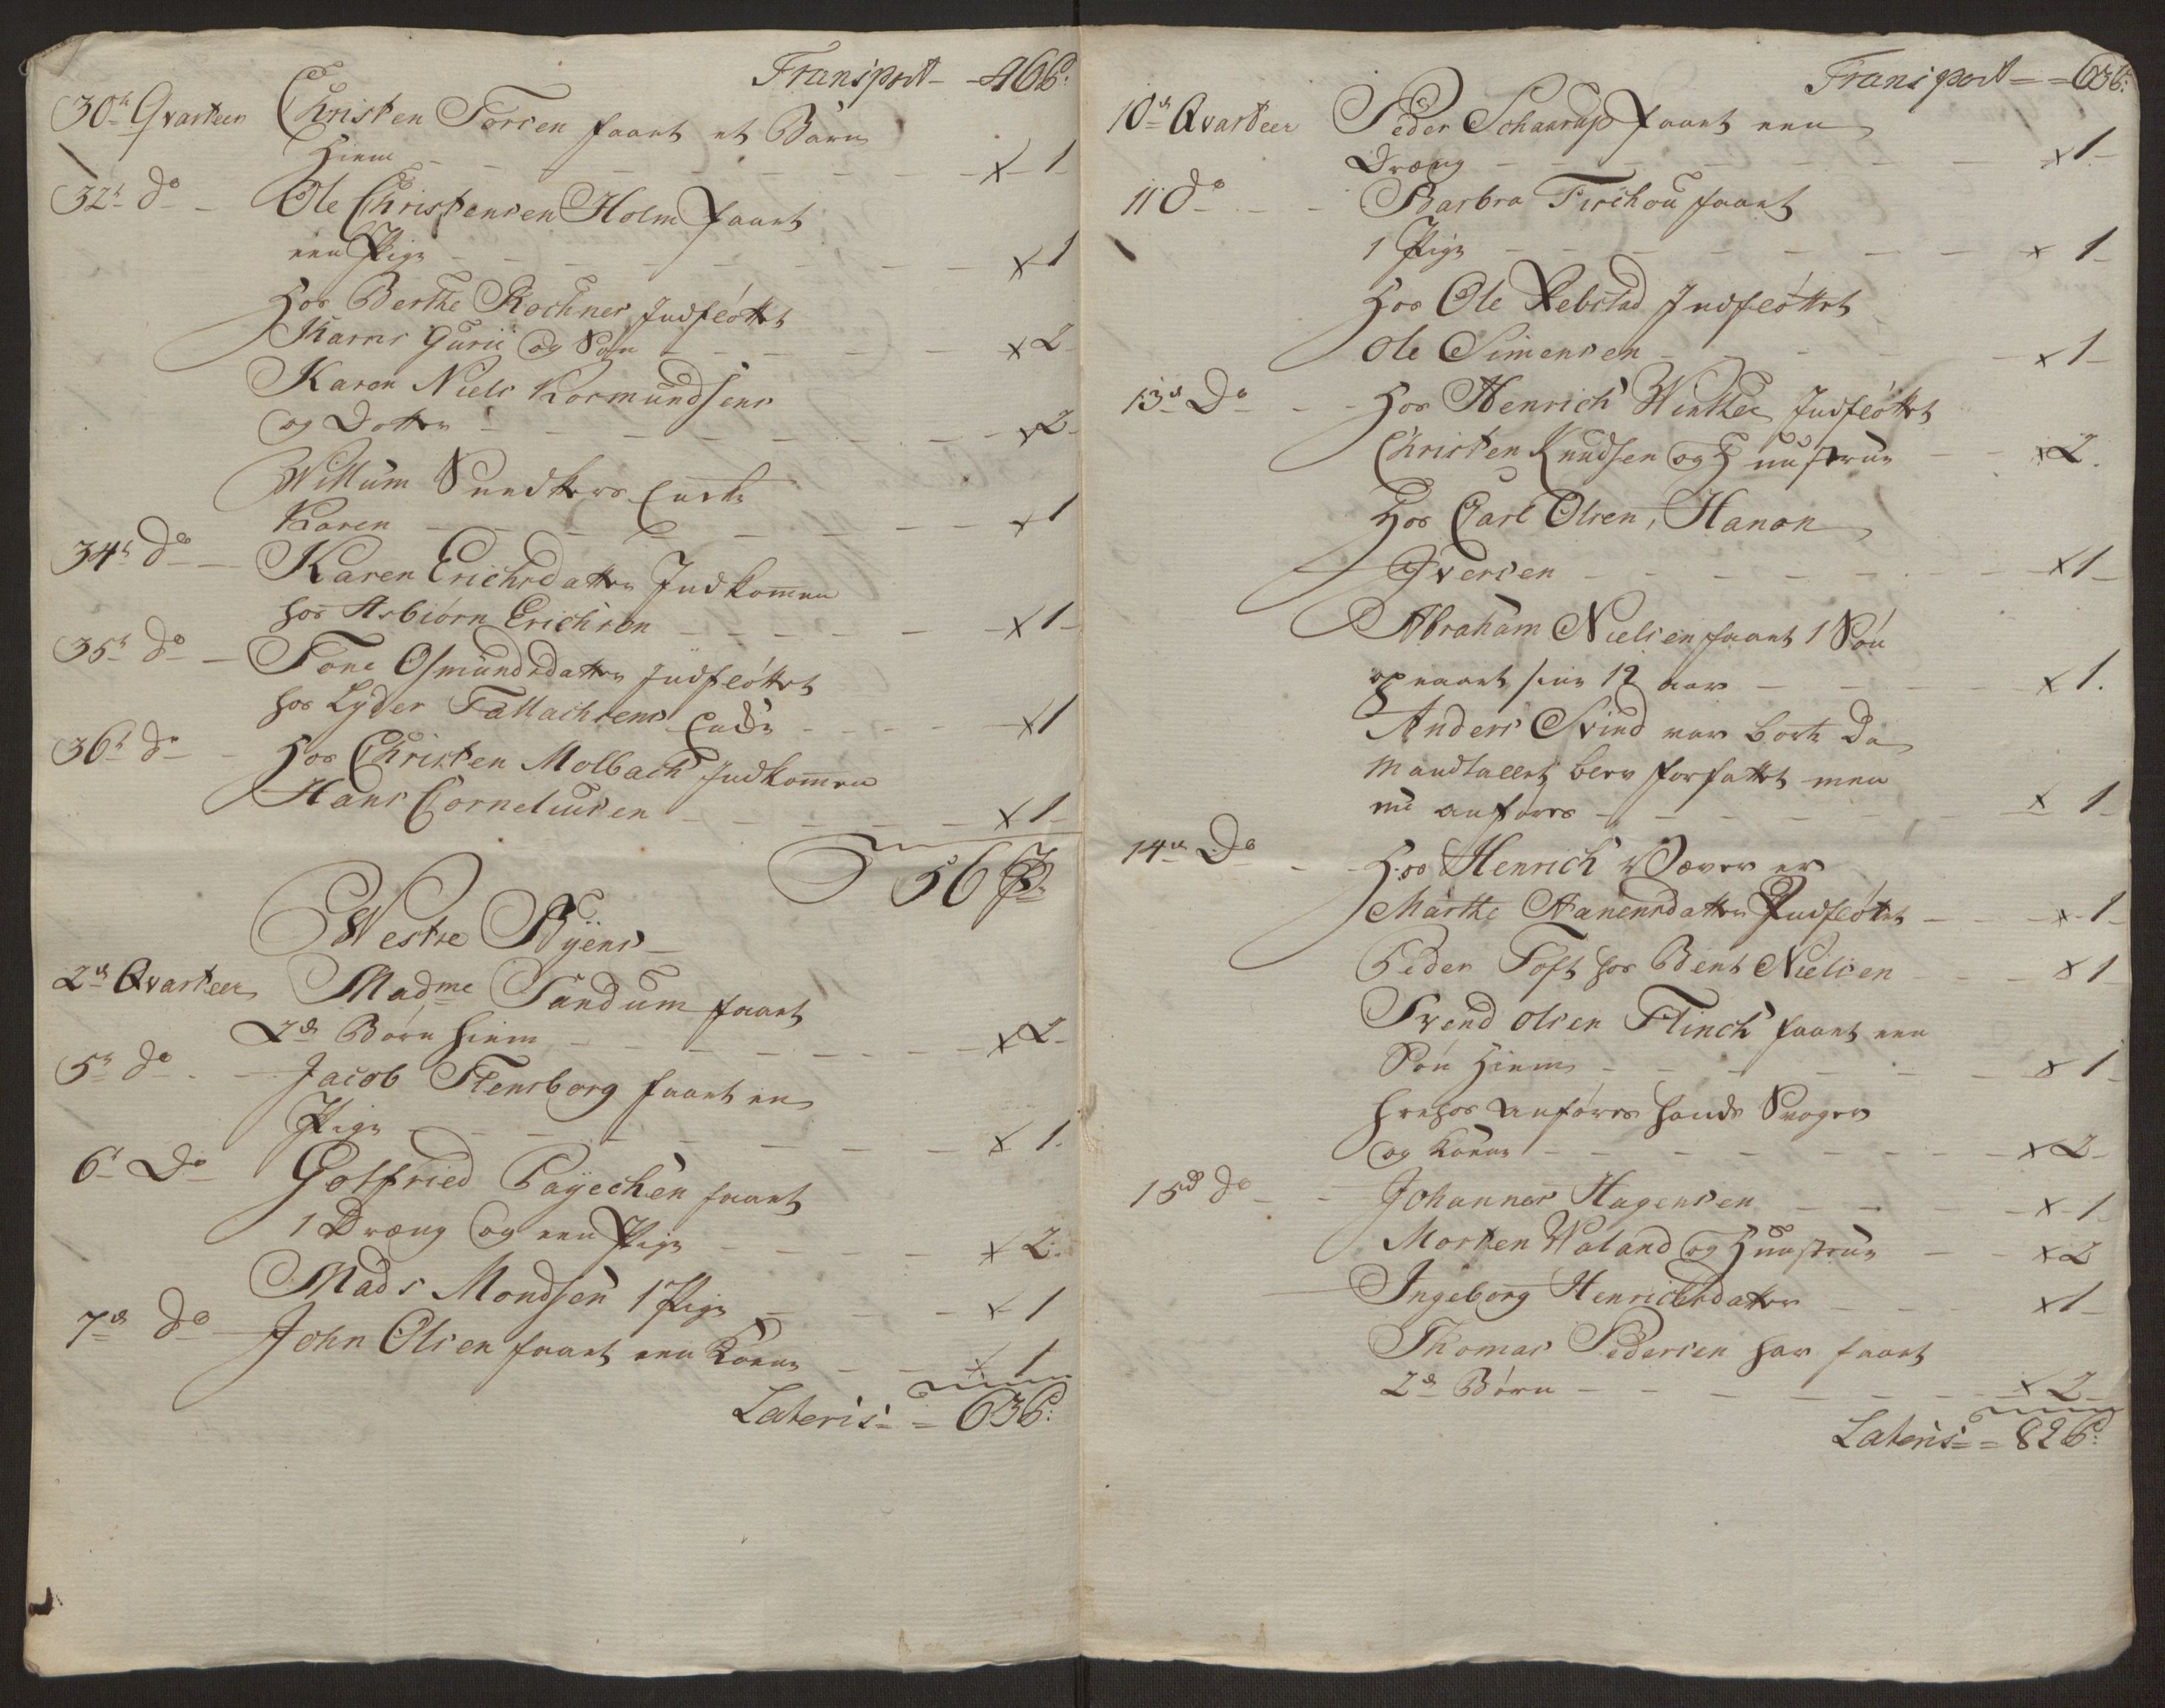 Transport - 46 P:
30te Qvarteer Christen Torsen faaet et Barn
Hiem - - - x 1
32te do - Ole Christensen Holm faaet
een Pige - - - x 1
Hos Berthe Kochner Indfløttet
Karrns Gurii og Søn - - - x 2
Karen Niels Kormundsens
og Dotter - - - x 2
Willum Enche
Karen - - - x 1
34te do - Karen Erichsdatter Indkommen
hos Asbiørn Erichsen - - - x 1
35te do - Tone Osmundsdatter Indfløttet
hos Lyder Tallachsens Encke - - - x 1
36te do - Hos Christen Molbach Indkommen
Hans Corneliusen - - - x 1
56 P
Westre Byens
2de Qvarteer Madme Sandum faaet
2de Børn hiem - - - x 2
5te do - Jacob Flensborg faaet en
Pige - - - x 1.
6te Do Gotfried Payechen faaet
1 Dræng og een Pige - - - x 2.
Mads Mondsen 1 Pige - - - x 1
7de do John Olsen faaet een Kone - - x 1
Lateris = 63 P:
Transport - = 63 P:
10de Qvarteer Peder Schaarup faaet een
Dræng - - - x 1
11 do - - Barbra Tirchou faaet
1 Pige - - - x 1
Hos Ole Rebstad Indfløttet
Ole Simensen - - - x 1
13de Do - - Hos Henrich Winther Indfløttet
Christen Knudsen og Huustrue - - x 2.
Hos Carl Olsen, Hanon
Iversen - - - x 1
Abraham Nielsen faaet 1 Søn
12 aar - - - x 1.
Anders Svind var borte Da
Mandtallet blev forfattet men
nu anføres - - - x 1
14de Do - - Hos Henrich Væver er
Marthe Hanensdatter Indfløttet - - - x 1
Peder Toft hos Bent Nielsen - - - x 1
Svend Olsen Flinch faaet een
Søn Hiem - - - x 1
hands Svoger
og Kone - - - x 2
15de do - - Johannes Hagensen - - - x 1
Morten Waland og Huustrue - - x 2
Ingeborg Henrichsdatter - - - x 1
Thomas Pedersen har faaet
2de Børn - - - x 2
Lateris = 82 P: